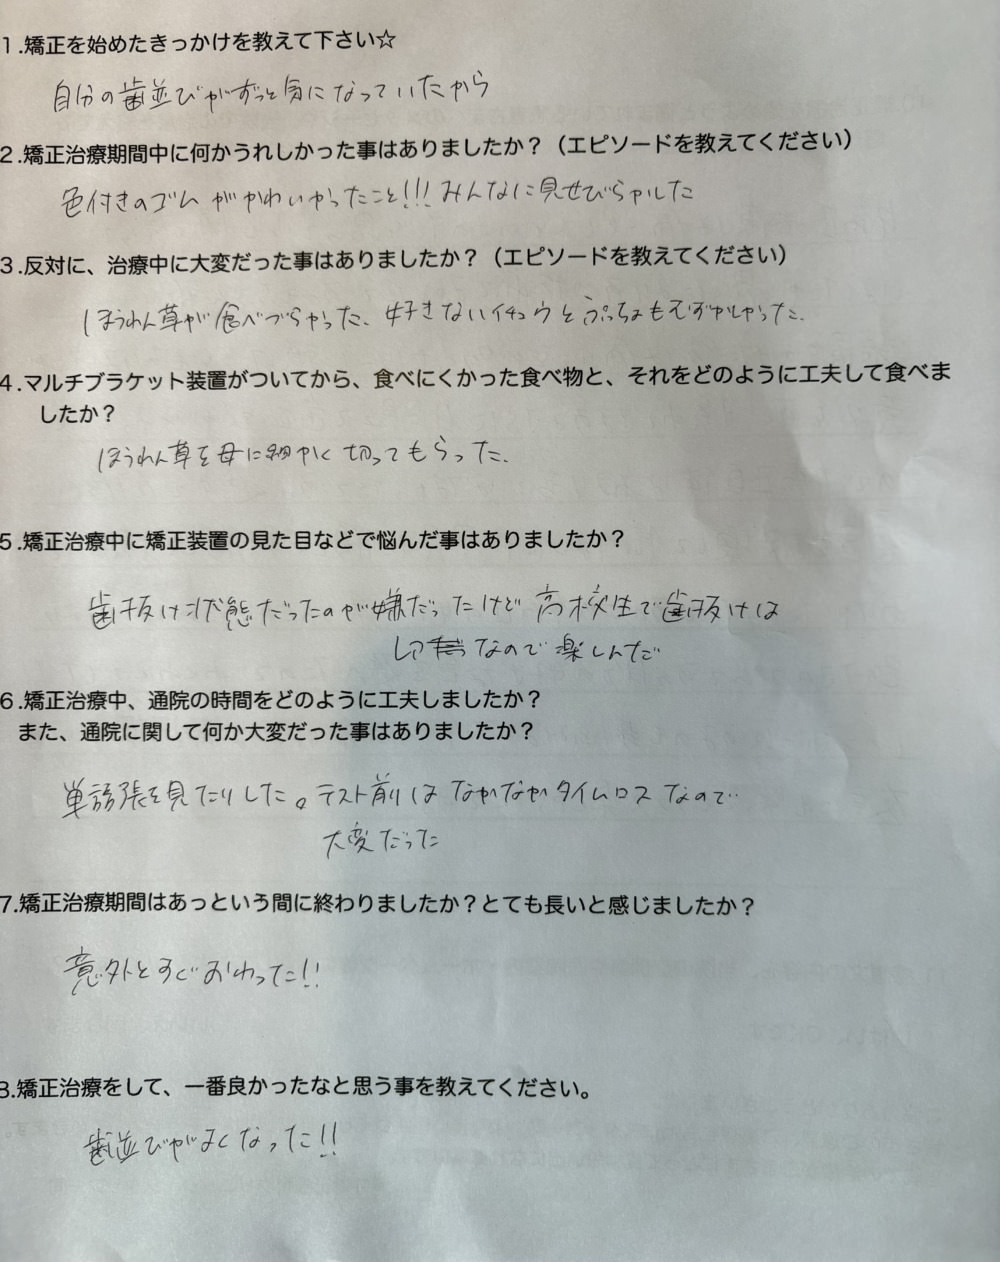 1.矯正を始めたきっかけを教えて下さい☆
自分の歯並びがずっと気になっていたから
2.矯正治療期間中に何かうれしかった事はありましたか？（エピソードを教えてください）
色付きのゴムがかわいかったこと!!! みんなに見せびらかした
3.反対に、治療中に大変だった事はありましたか？（エピソードを教えてください）
ほうれん草が食べづらかった、好きなハイチュウとぷっちょもむずかしかった、
4.マルチブラケット装置がついてから、食べにくかった食べ物と、それをどのように工夫して食べま
したか？
ほうれん草を母に細かく切ってもらった、
5.矯正治療中に矯正装置の見た目などで悩んだ事はありましたか？
歯抜け状態だったのが嫌だったけど高校生で歯抜けは
レアなので楽しんだ
6.矯正治療中、通院の時間をどのように工夫しましたか？
また、通院に関して何か大変だった事はありましたか？
単語張を見たりした。テスト前はなかなかタイムロスなので
大変だった
7.矯正治療期間はあっという間に終わりましたか？とても長いと感じましたか？
意外とすぐおわった!!
8.矯正治療をして、一番良かったなと思う事を教えてください。
歯並びがよくなった!!